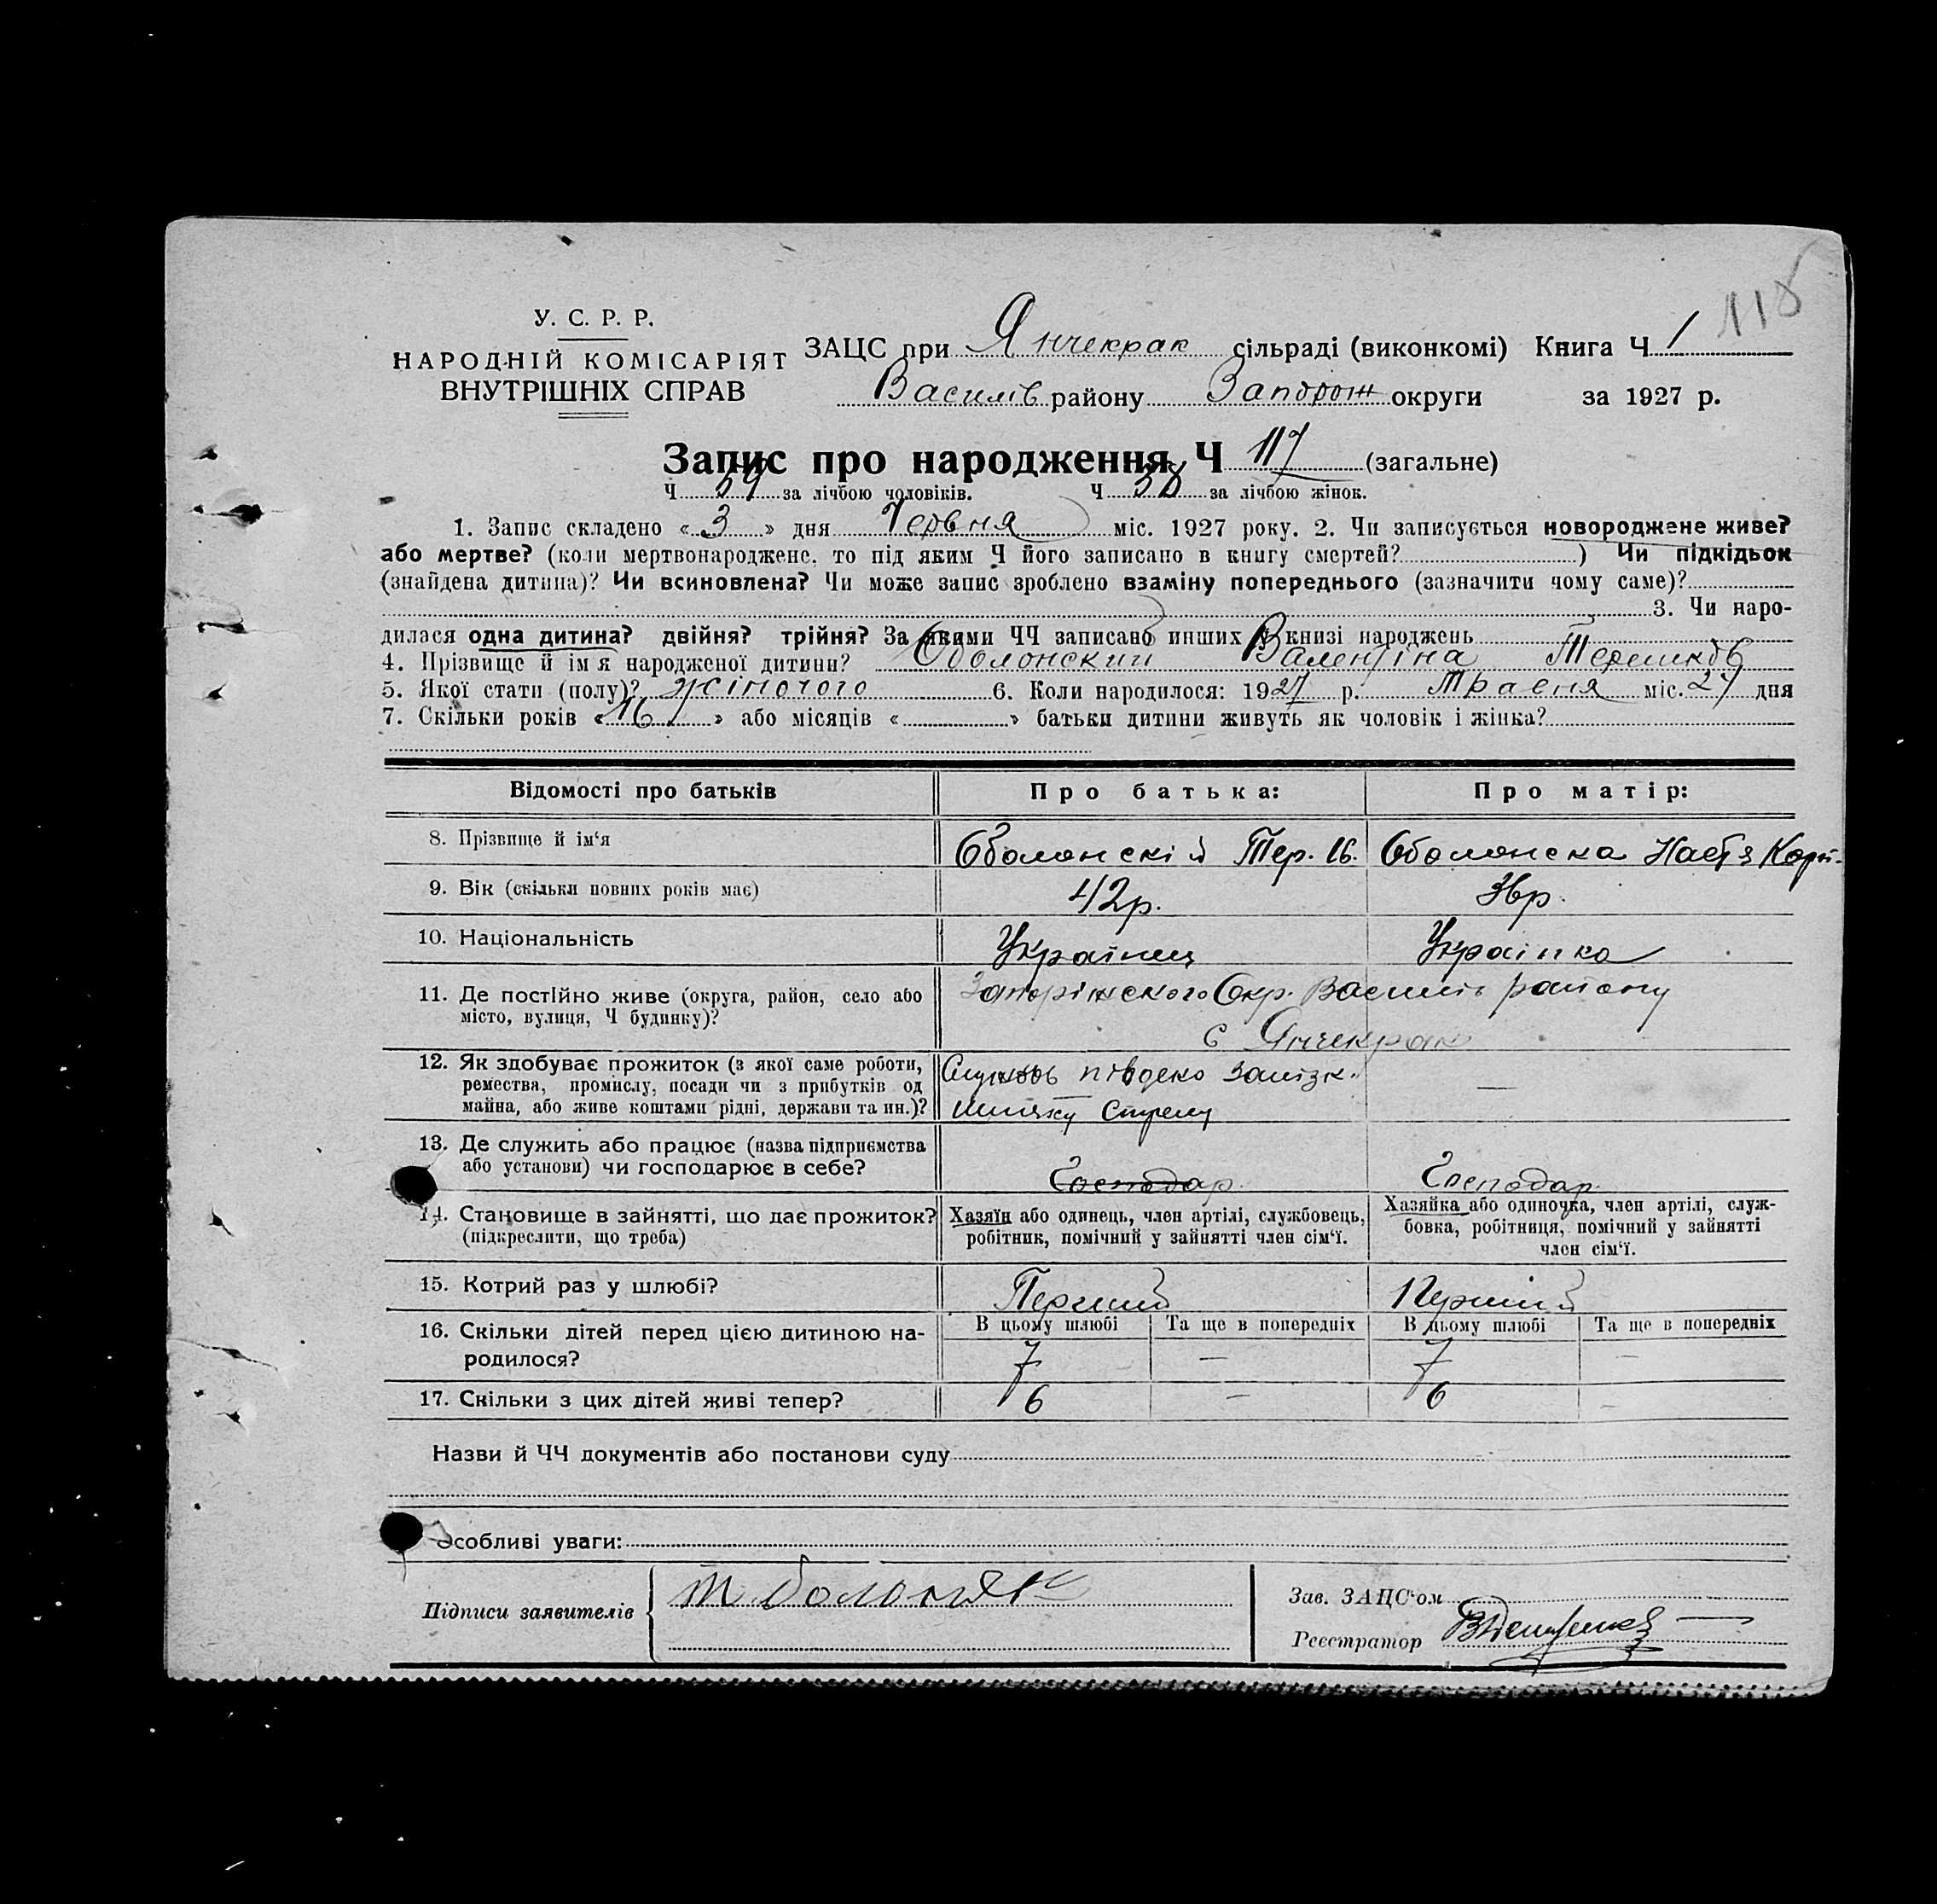 118
У. С. Р. Р.
НАРОДНІЙ КОМІСАРІЯТ
ВНУТРІШНІХ СПРАВ
ЗАЦС при Янчекрак сільраді (виконкомі) Книга Ч 1
Василів району Запорож округи за 1927 р.
Запис про народження Ч 117 (загальне)
Ч 59 за лічбою чоловіків. Ч 58 за лічбою жінок.
1. Запис складено «3» дня Червня міс. 1927 року. 2. Чи записується новороджене живе?
або мертве? (коли мертвонароджене, то під яким Ч його записано в книгу смертей? ) Чи підкідьок
(знайдена дитина)? Чи всиновлена? Чи може запис зроблено взаміну попереднього (зазначити чому саме)?
3. Чи наро-
дилася одна дитина? двійня? трійня? За якими ЧЧ записано инших в книзі народжень
4. Прізвище й ім'я народженої дитини? Оболонский Валентіна
5. Якої стати (полу)? жіночого 6. Коли народилося: 1927 р. Травня міс. 27 дня
7. Скільки років «16» або місяців « » батьки дитини живуть як чоловік і жінка?
Відомості про батьків Про батька: Про матір:
8. Прізвище й ім'я Оболонскій Тер. Ів. Оболонска Настя
9. Вік (скільки повних років має) 42р. 36р.
10. Національність Українец Українка
11. Де постійно живе (округа, район, село або Запоріжского Окр. Василів району
місто, вулиця, Ч будинку)? с Янчекрак
12. Як здобуває прожиток (з якої саме роботи,
ремества, промислу, посади чи з прибутків од
майна, або живе коштами рідні, держави та ин.)? —
13. Де служить або працює (назва підприємства
або установи) чи господарює в себе? Господар. Господар.
14. Становище в зайнятті, що дає прожиток? Хазяїн або одинець, член артілі, службовець, Хазяйка або одиночка, член артілі, служ-
(підкреслити, що треба) робітник, помічний у зайнятті член сім'ї. бовка, робітниця, помічний у зайнятті
член сім'ї.
15. Котрий раз у шлюбі? Перший Першій
16. Скільки дітей перед цією дитиною на- В цьому шлюбі Та ще в попередніх В цьому шлюбі Та ще в попередніх
родилося? 7 — 7 —
17. Скільки з цих дітей живі тепер? 6 — 6 —
Назви й ЧЧ документів або постанови суду
Особливі уваги:
Підписи заявителів
Зав. ЗАЦС'ом
Реєстратор